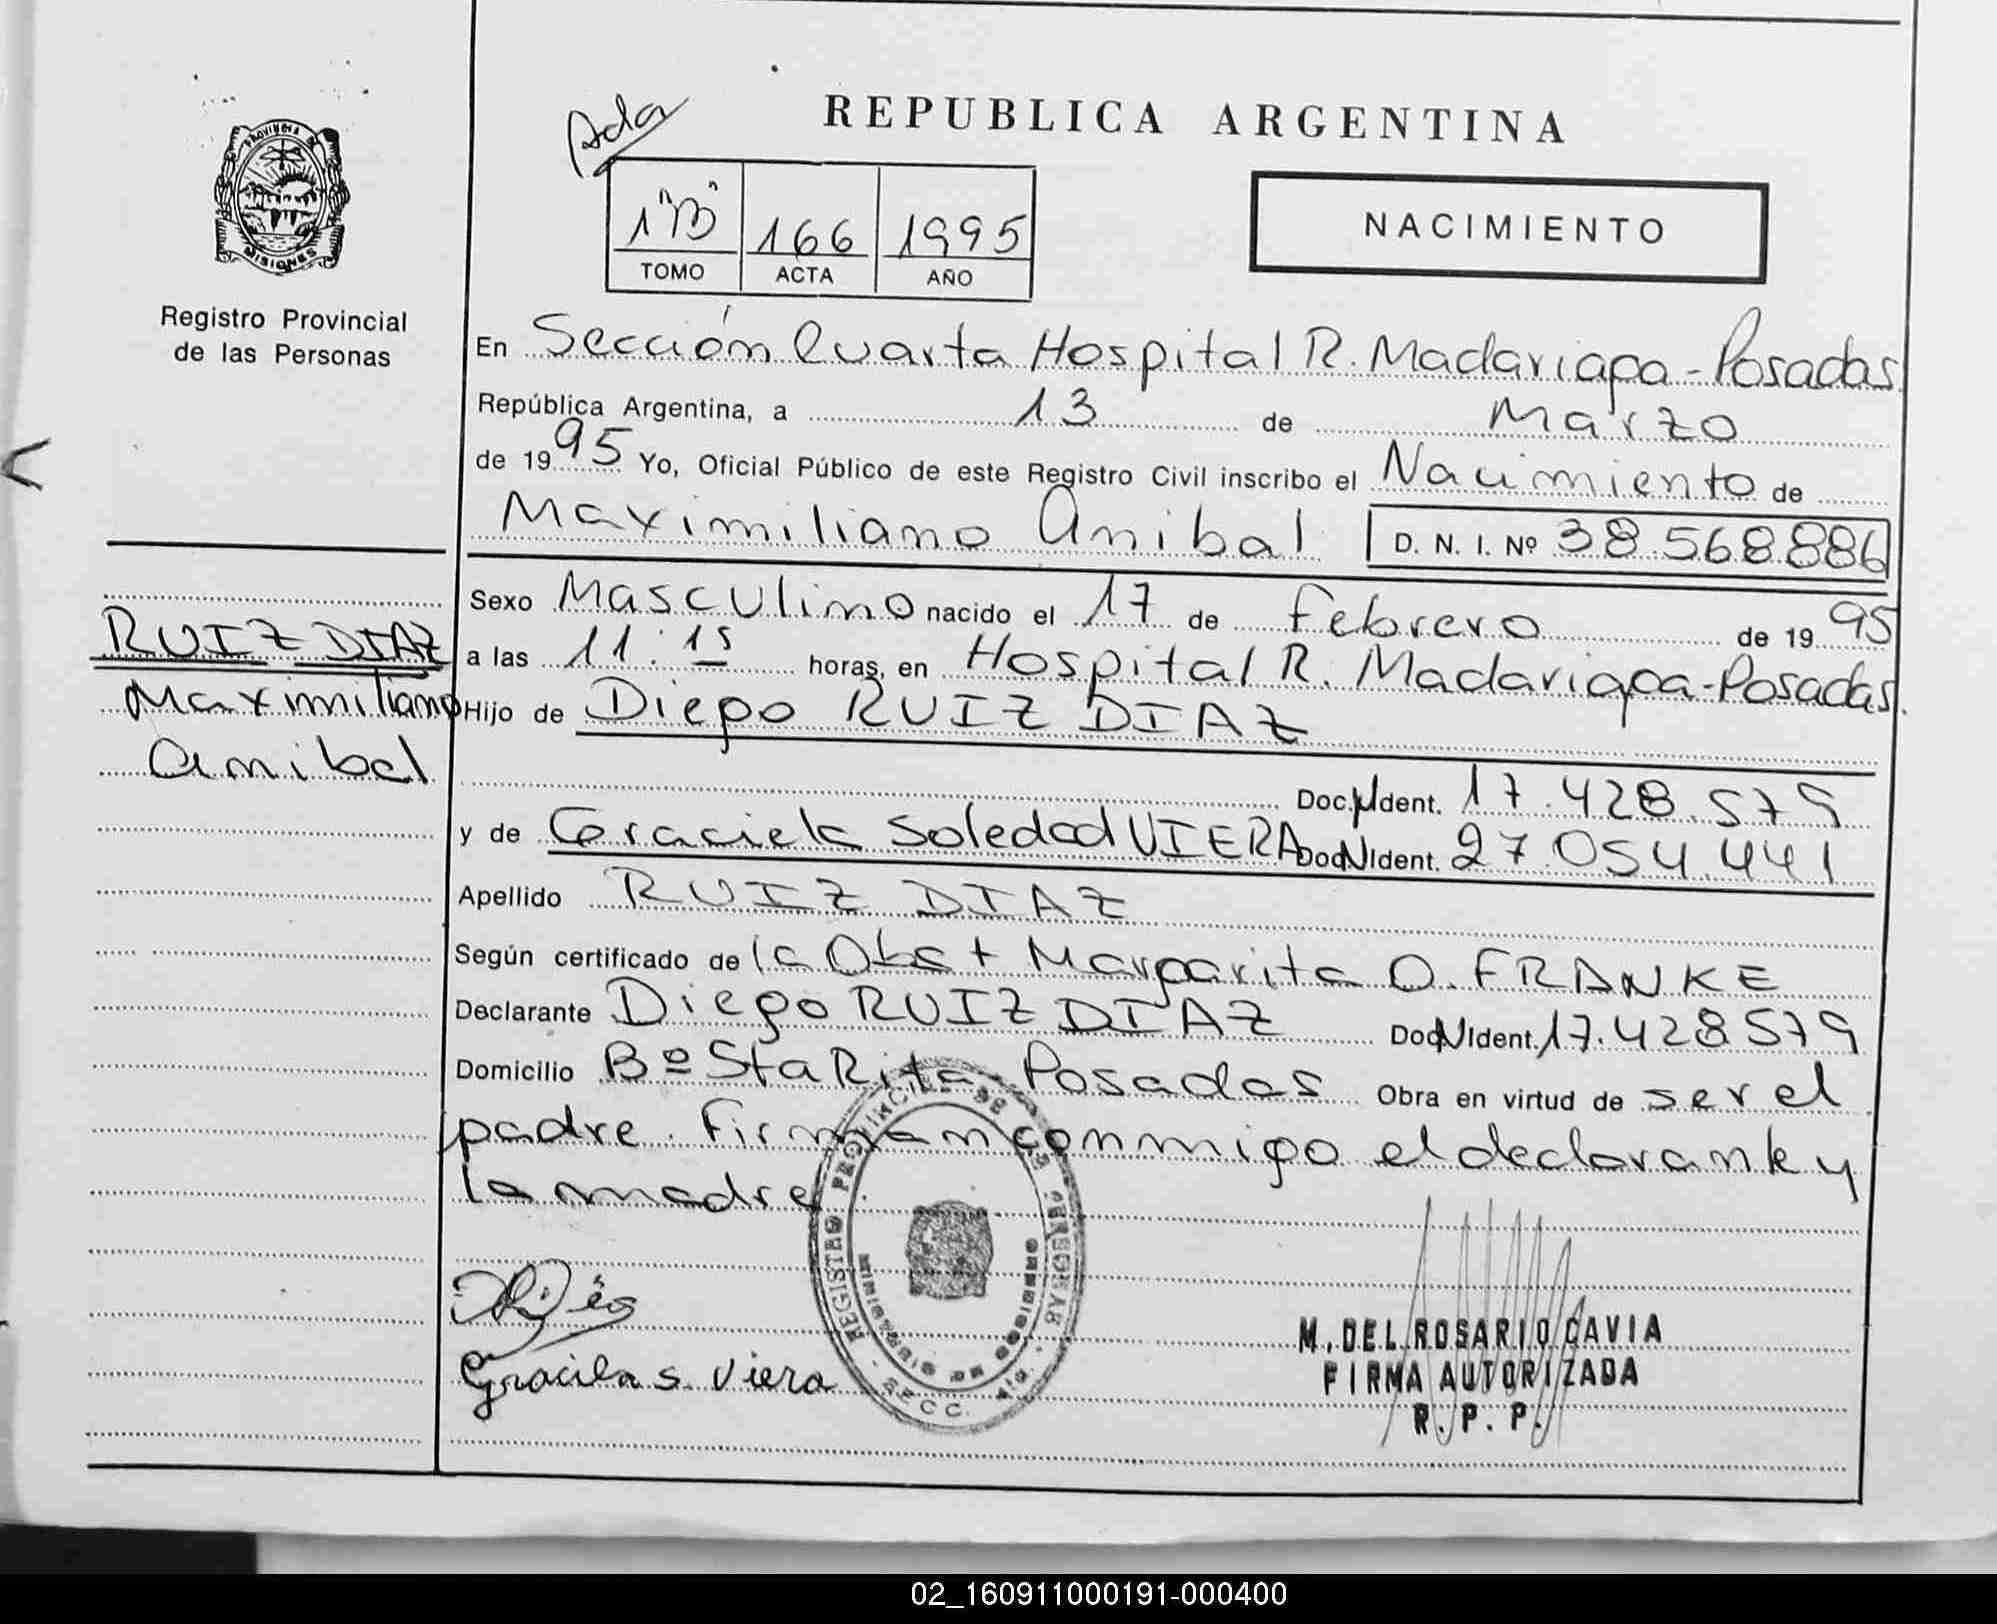 REPUBLICA ARGENTINA
PROVINCIA DE
MISIONES
Registro Provincial
de las Personas
1 "B" 166 1995
TOMO ACTA AÑO
NACIMIENTO
En Sección Cuarta Hospital R. Madariaga - Posadas.
República Argentina, a 13 de Marzo
de 1995 Yo, Oficial Público de este Registro Civil inscribo el Nacimiento de
Maximiliano Anibal D. N. I. Nº 38.568.886
Sexo Masculino nacido el 17 de Febrero de 1995
a las 11:15 horas, en Hospital R. Madariaga - Posadas.
RUIZ DIAZ
Maximiliano
Anibal
Hijo de Diego RUIZ DIAZ
Doc. N Ident. 17.428.579
y de Graciela Soledad VIERA Doc N Ident. 27.054.441
Apellido RUIZ DIAZ
Según certificado de la Obst Margarita O. FRANKE
Declarante Diego RUIZ DIAZ Doc N Ident. 17.428.579
Domicilio Bº Sta Rita Posadas Obra en virtud de ser el
padre. Firman conmigo el declarante y
la madre
REGISTRO PROVINCIAL DE LAS PERSONAS
SECC.
Graciela S. Viera
M. DEL ROSARIO CAVIA
FIRMA AUTORIZADA
R. P. P.
02_160911000191-000400